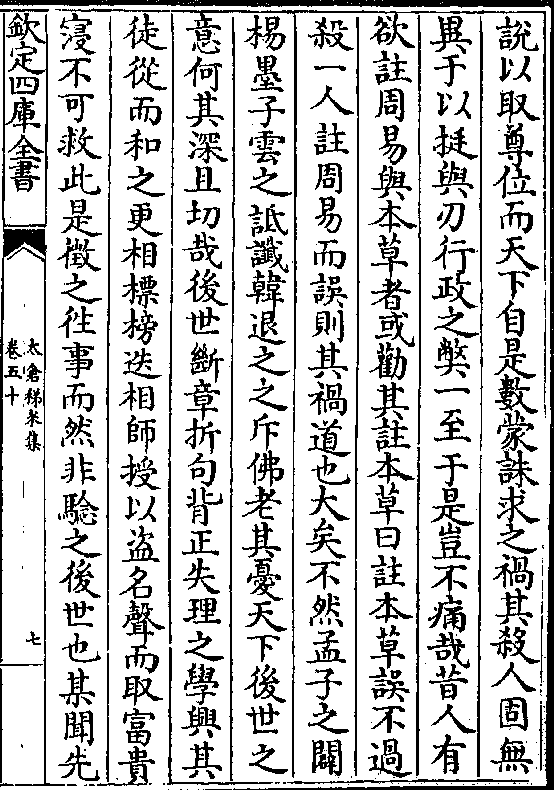 說以取尊位而天下自是數蒙誅求之禍其殺人固無
異于以挺與刃行政之弊一至于是豈不痛哉昔人有
欲註周易與本草者或勸其註本草曰註本草誤不過
殺一人註周易而誤則其禍道也大矣不然孟子之闢
楊墨子雲之詆讖韓退之之斥佛老其憂天下後世之
意何其深且切哉後世斷章折句背正失理之學興其
徒從而和之更相標榜迭相師授以盜名聲而取富貴
寖不可救此是徵之徃事而然非驗之後世也某聞先
欽定四庫全書
太倉稊米集
卷五十
七